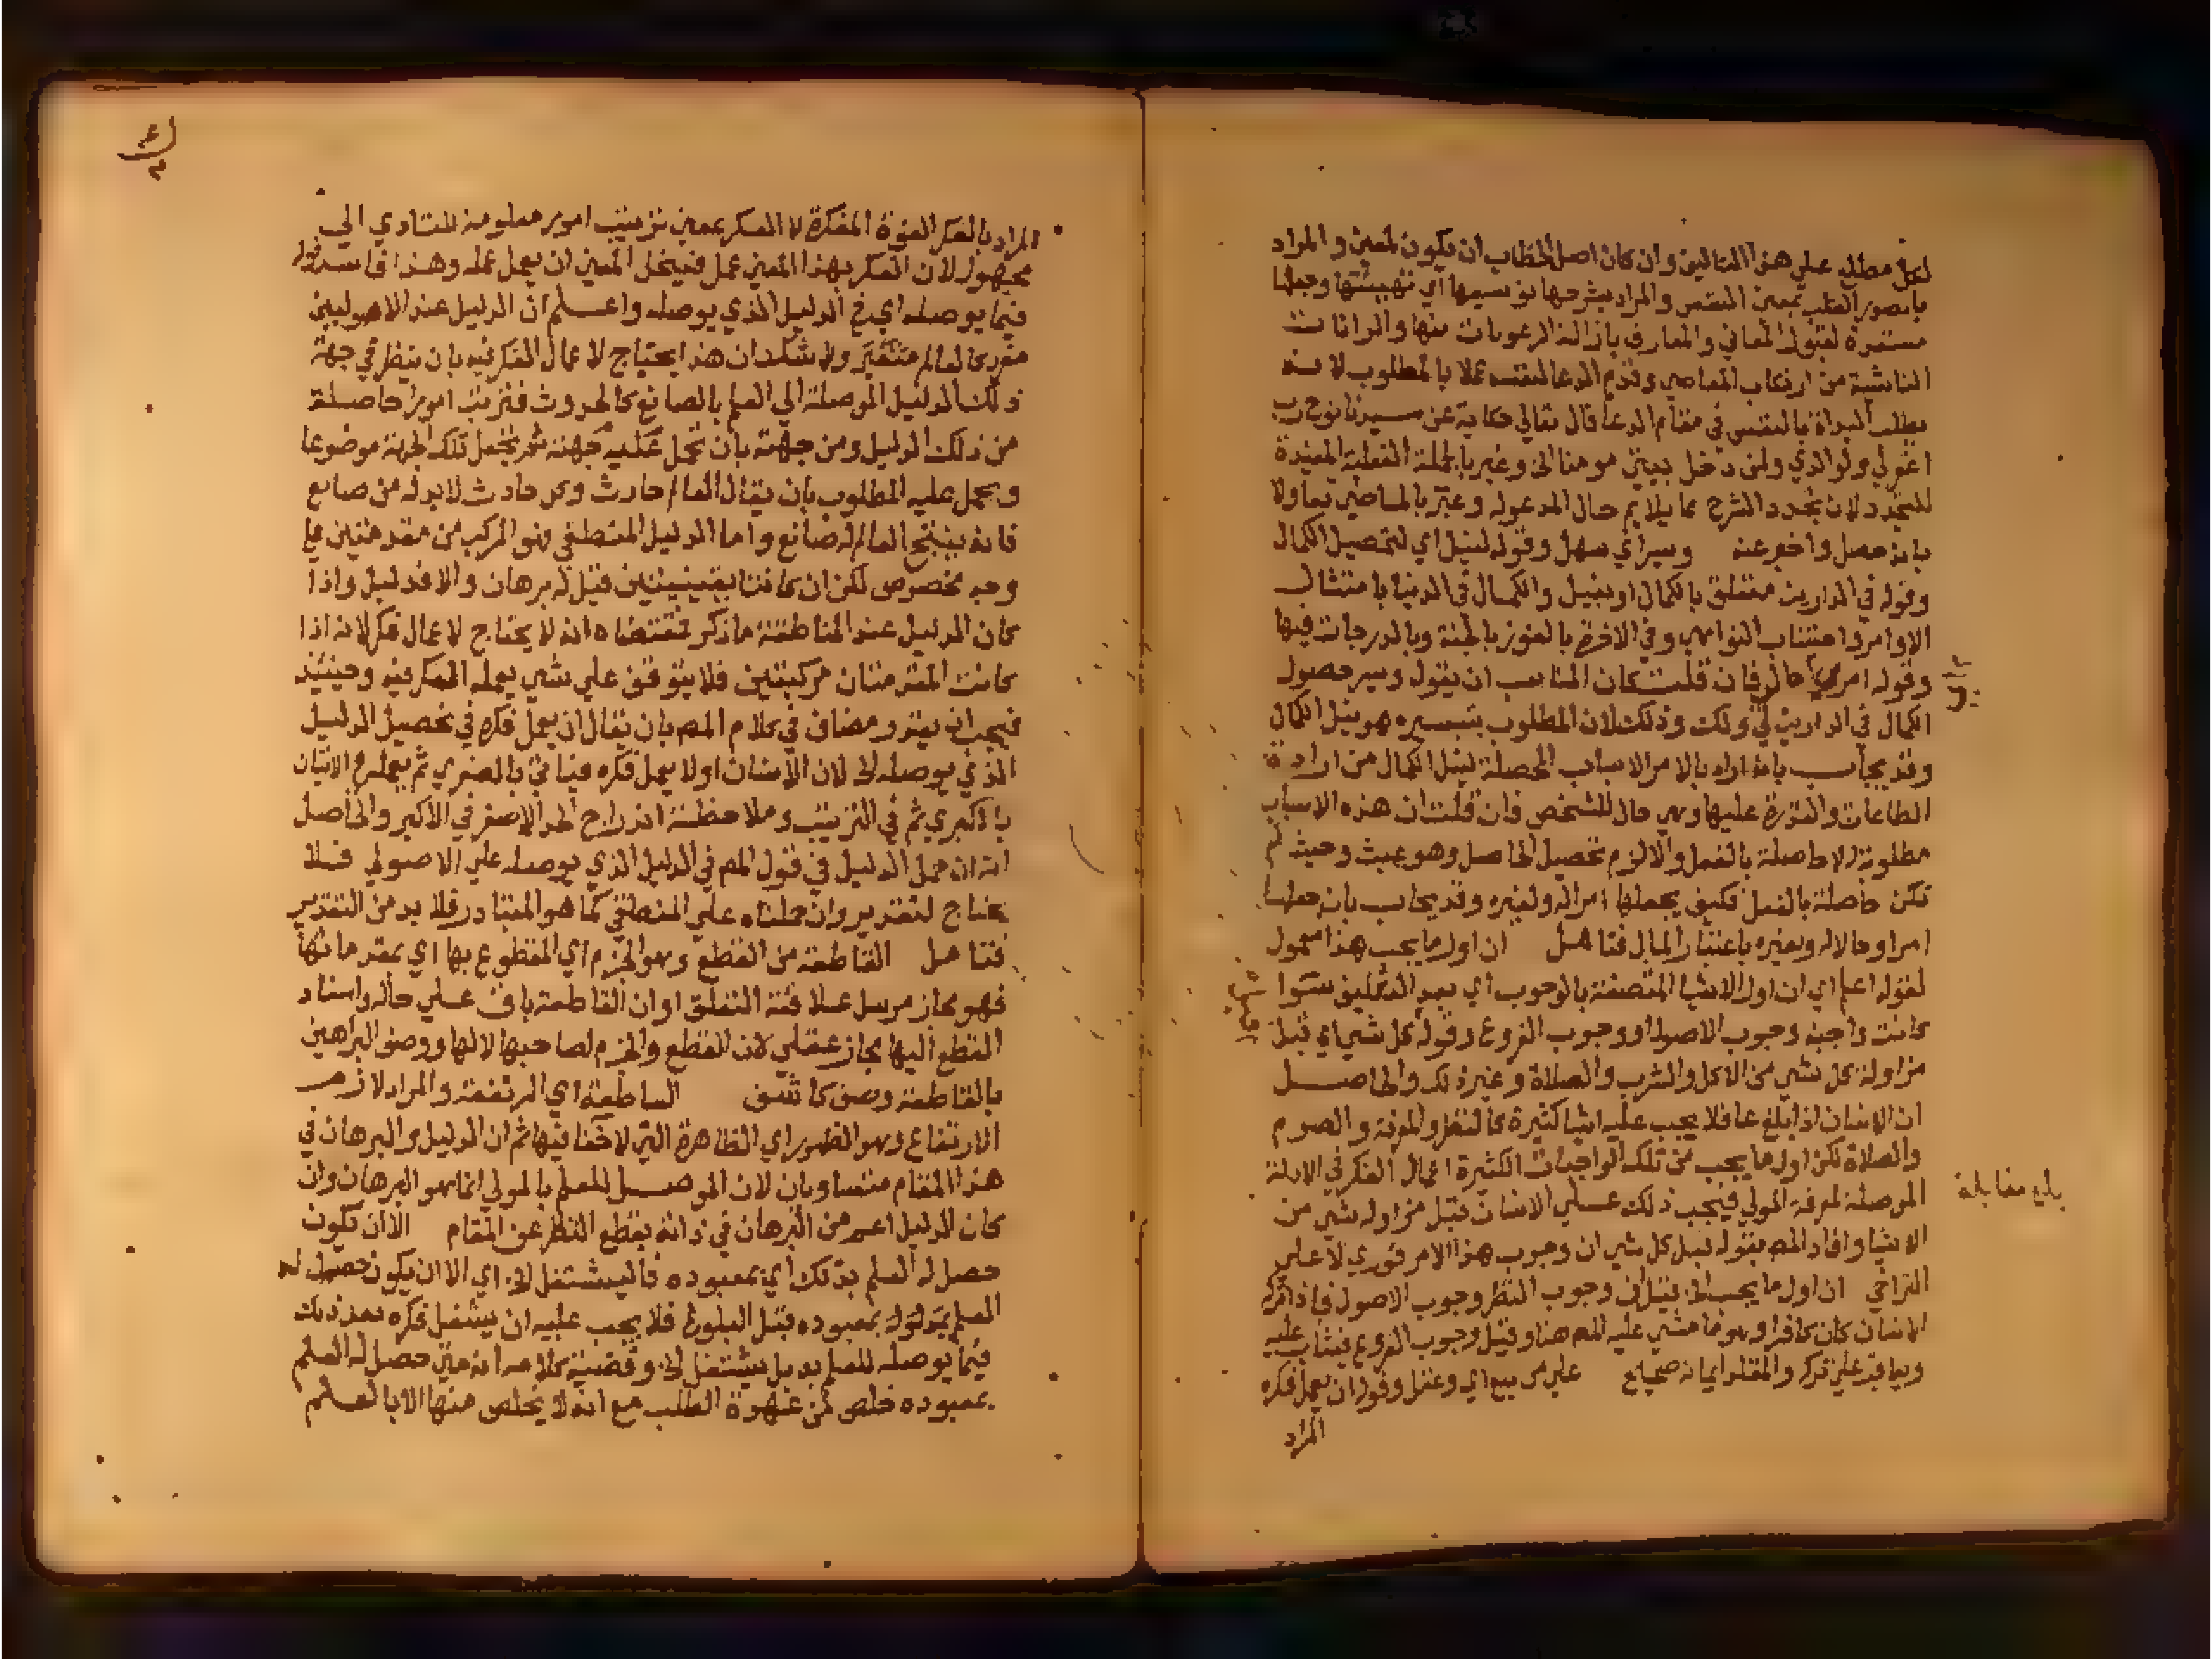 لكل مطلع علي هذا التاليف وان كان اصل الخطاب ان يكون لمعين والمراد
بالصدور القلب بمعني النفس والمراد بشرحها توسيعها اي تهيئتها وجعلها
مستعدة لقبول المعاني والمعارف بازالة الرعونات منها والرانات
الناشية من ارتكاب المعاصي وقدم الدعا لنفسه عملا بالمطلوب لانه
يطلب البداة بالنفس في مقام الدعا قال تعالي حكاية عن سيدنا نوح رب
اغفر لي ولوالدي ولمن دخل بيتي مومنا الخ وعبر بالجملة الفعلية المفيدة
للتجدد لان تجدد الشرح مما يلايم حال المدعو له وعبر بالماضي تفاولا
بانه حصل واخبر عنه ويسر اي سهل وقوله لنيل اي لتحصيل الكمال
وقوله في الدارين متعلق بالكمال او بنيل والكمال في الدنيا بامتثال
الاوامر واجتناب النواهي وفي الاخرة بالفوز بالجنة وبالدرجات فيها
وقوله امري حال فان قلت كان المناسب ان يقول ويسر حصول
الكمال في الدارين لي ولك وذلك لان المطلوب بتيسيره هو نيل الكمال
وقد يجاب بانه اراد بالامر الاسباب المحصلة لنيل الكمال من ارادة
الطاعات والقدرة عليها وهي حال للشخص فان قلت ان هذه الاسباب
مطلوبة لا حاصلة بالفعل والا لزم تحصيل الحاصل وهو عبث وحيث لم
تكن حاصلة بالفعل فكيف يجعلها امرا له ولغيره وقد يجاب بانه جعلها
امرا وحالا له ولغيره باعتبار المال فتامل ان اول ما يجب هذا معمول
لقوله اعلم اي ان اول الاشيا المتصفة بالوجوب اي بعد التكليف سوا
كانت واجبة وجوب الاصول او وجوب الفروع وقوله كل شي اي قبل
مزاولة كل شي من الاكل والشرب والصلاة وغير ذلك والحاصل
ان الانسان اذا بلغ عاقلا يجب عليه اشيا كثيرة كالنظر والمعرفة والصوم
والصلاة لكن اول ما يجب من تلك الواجبات الكثيرة اعمال الفكر في الادلة
الموصلة لمعرفة المولي فيجب ذلك علي الانسان قبل مزاولة شي من
الاشيا وافاد المص بقوله قبل كل شي ان وجوب هذا الامر فوري لا علي
التراخي ان اول ما يجب الخ قيل ان وجوب النظر وجوب الاصول فاذا تركه
الانسان كان كافرا وهو ما مشي عليه المص هنا وقيل وجوب الفروع فيثاب عليه
ويعاقب علي تركه والمقلد ايمانه صحيح علي من بلغ اي وعقل وقوله ان يعمل فكره
المراد
بلغ مقابلة
المراد بالفكر القوة المفكرة لا الفكر بمعني ترتيب امور معلومة للتادي الي
مجهول لان الفكر بهذا المعني عمل فينحل المعني ان يعمل عمله وهذا فاسد قوله
فيما يوصله اي في الدليل الذي يوصله واعلم ان الدليل عند الاصوليين
مفرد كالعالم متغير ولا شك ان هذا يحتاج لاعمال الفكر فيه بان ينظر في جهة
ذلك الدليل الموصلة الي العلم بالصانع كالحدوث فترتب امورا حاصلة
من ذلك الدليل ومن جهته بان تحمل عليه جهته ثم تجعل تلك الجهة موضوعا
ويحمل عليه المطلوب بان يقال العالم حادث وكل حادث لابد له من صانع
فانه ينتج العالم له صانع واما الدليل المنطقي فهو المركب من مقدمتين علي
وجه مخصوص لكن ان كانتا يقينيتين قيل له برهان والا فدليل واذا
كان الدليل عند المناطقة ما ذكر فمقتضاه انه لا يحتاج لاعمال فكر لانه اذا
كانت المقدمتان مركبتين فلا يتوقف علي شي يعمله الفكر فيه وحينيذ
فيجب ان يقدر مضاف في كلام المص بان يقال ان يعمل فكره في تحصيل الدليل
الذي يوصله الخ لان الانسان اولا يعمل فكره فياتي بالصغري ثم يعمله في الاتيان
بالكبري ثم في الترتيب وملاحظة اندراج الحد الاصغر في الاكبر والحاصل
انه ان حمل الدليل في قول المص في الدليل الذي يوصله علي الاصولي فلا
يحتاج لتقدير وان حملناه علي المنطقي كما هو المتبادر فلا بد من التقدير
فتامل القاطعة من القطع وهو الجزم اي المقطوع بها اي بمقدماتها
فهو مجاز مرسل علاقته التعلق او ان القاطعة باق علي حاله واسناد
القطع اليها مجاز عقلي لان القطع والجزم لصاحبها لا لها ووصف البراهين
بالقاطعة وصف كاشف الساطعة اي المرتفعة والمراد لازم
الارتفاع وهو الظهور اي الظاهرة التي لا خفا فيها ثم ان الدليل والبرهان في
هذا المقام متساويان لان الموصل للعلم بالمولي انما هو البرهان وان
كان الدليل اعم من البرهان في ذاته بقطع النظر عن المقام الا ان تكون
حصل له العلم بذلك اي بمعبوده فاليشتغل الخ اي الا ان يكون حصل له
العلم بمعبوده قبل البلوغ فلا يجب عليه ان يشغل فكره بعد ذلك
فيما يوصله للعلم به بل يشتغل الخ وقضية كلامه انه متي حصل له العلم
بمعبوده خلص من عهدة الطلب مع انه لا يخلص منها الا بالعلم